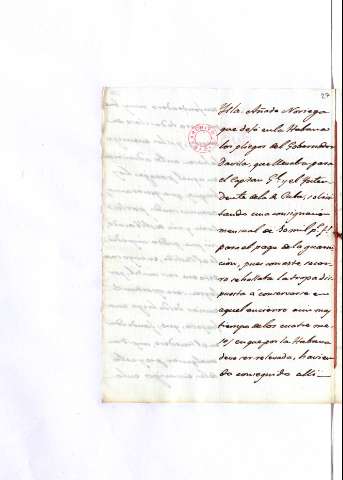 27
Illa. Añade Noriega
que dejó en la Habana
los pliegos del Gobernador
Davila, que llevaba para
el Capitan Gl. y el Inten
dente de la de Cuba, solici
tando una consignacion
mensual de 30 mil ps. fs.
para el pago de la guarni
cion, pues con este socor
ro se hallaba la tropa dis
puesta á conservarse en
aquel encierro aun mas
tiempo de los cuatro me
ses en que por la Habana
debe ser relevada, havien
do conseguido alli